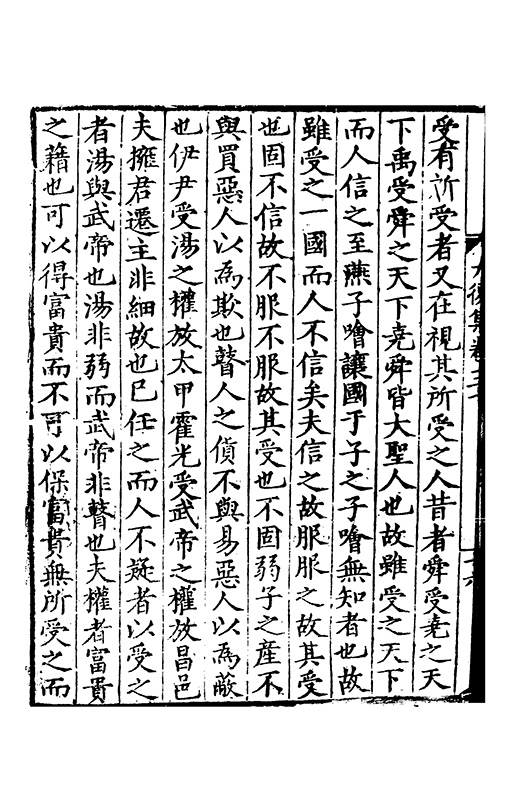 受有所受者又在視其所受之人昔者舜受堯之天
下禹受舜之天下堯舜皆大聖人也故雖受之天下
而人信之至燕子噲讓國于子之子噲無知者也故
雖受之一國而人不信矣夫信之故服服之故其受
也固不信故不服不服故其受也不固弱子之産不
與買惡人以為欺也瞽人之儥不與易惡人以為蔽
也伊尹受湯之權放太甲霍光受武帝之權放昌邑
夫擁君遷主非細故也已任之而人不疑者以受之
者湯與武帝也湯非弱而武帝非瞽也夫權者富貴
之藉也可以得富貴而不可以保富貴無所受之而